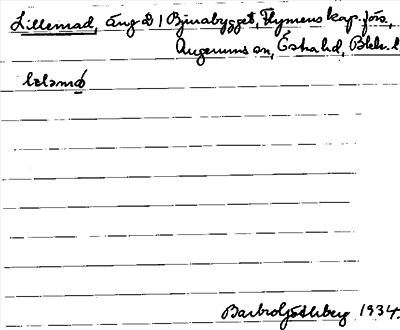 Lillemad, äng å 1 Bjurabygget, Flymens kap.förs,
Augerums sn, Östra hd, Blek. l
Barbro Götlberg 1934.